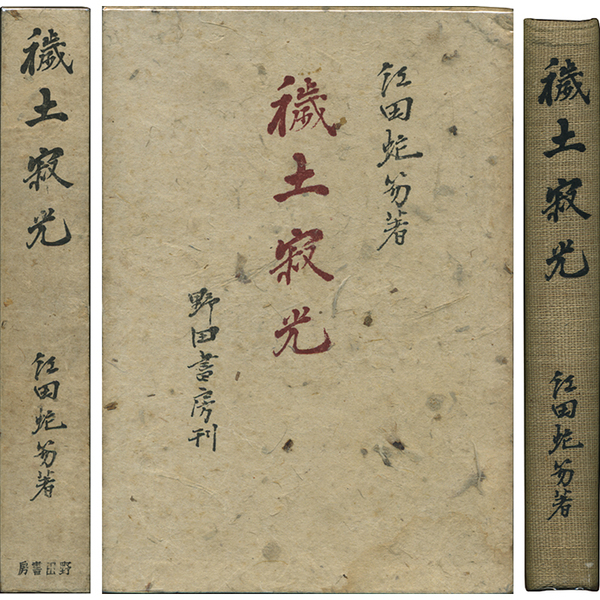 穢土寂光
飯田蛇笏著
野田書房
飯田蛇笏著
穢土寂光
野田書房刊
穢土寂光
飯田蛇笏著